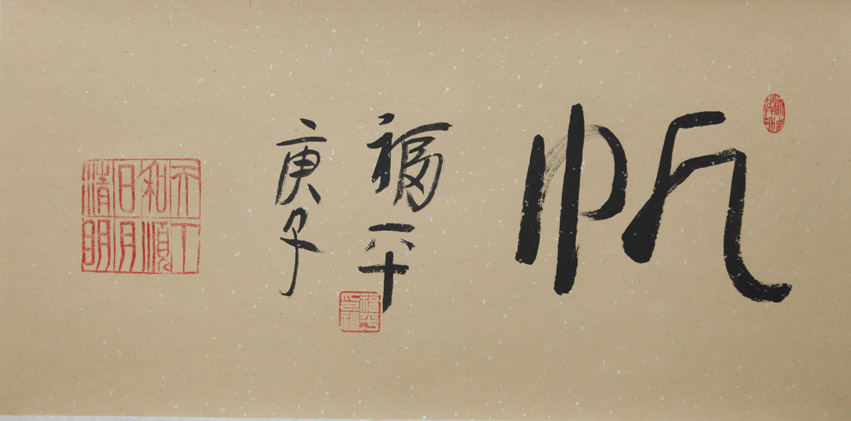 帆
福平
庚子
天下
和順
日月
清明